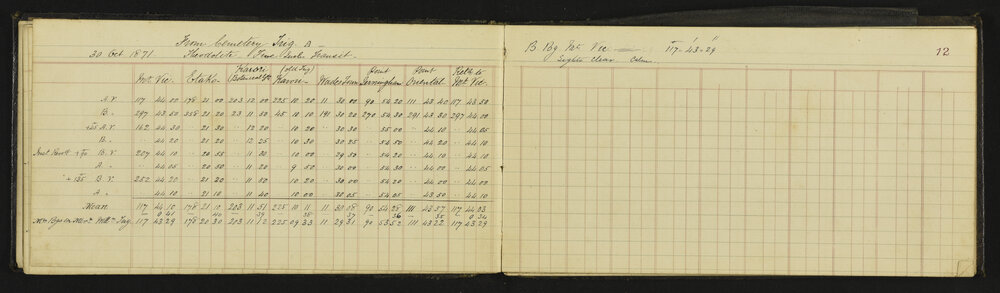 From Cemetery Trig B
30 Oct 1871 Theodolite 5 Inch Transit
B Bg Mt Vic — 117°-43'-29"
Lights clear Calm
12
Mt. Vic. Etako Karori (Botanical Gdn) (old Trig) Karori Wades Town Point Jerningham Point Oriental Retn to Mt Vic.
A.V. 117 44.00 178 21 00 203 12 00 225 10 20 11 30 00 90 54.20 111 43 40 117 43.50
B. 297 43.50 358 21 20 23 11 50 45 10 10 191 30 20 270 54.30 291 43.30 297 44.00
+45 A.V. 162 44.30 .. 21 30 .. 12 20 .. 10 20 .. 30 30 .. 55 00 .. 44 10 .. 44.05
B. .. 44 20 .. 21 20 .. 12 25 .. 10 30 .. 30 25 .. 54.50 .. 44 20 .. 44.10
+90 B.V. 207 44 10 .. 20 55 .. 11 30 .. 10 00 .. 29 50 .. 54 20 .. 44 10 .. 44.10
A. .. 44 05 .. 20 50 .. 11 20 .. 9 50 .. 30 00 .. 54 30 .. 44.00 .. 44.10
+135 B.V. 252 44 20 .. 21 10 .. 11 50 .. 10 20 .. 30.00 .. 54 20 .. 44 00 .. 44.00
A. .. 44 10 .. 21 10 .. 11 40 .. 10 00 .. 30 05 .. 54.05 .. 43 50 .. 44.10
Mean 117 44.10 178 21.10 203 11.51 225 10 11 11 30.08 90 54.28 111 43.57 117 44.03
0 41 40 39 38 37 36 35 0 34
117 43.29 178 20 30 203 11 12 225 09 33 11 29.31 90 53 52 111 43 22 117 43.29